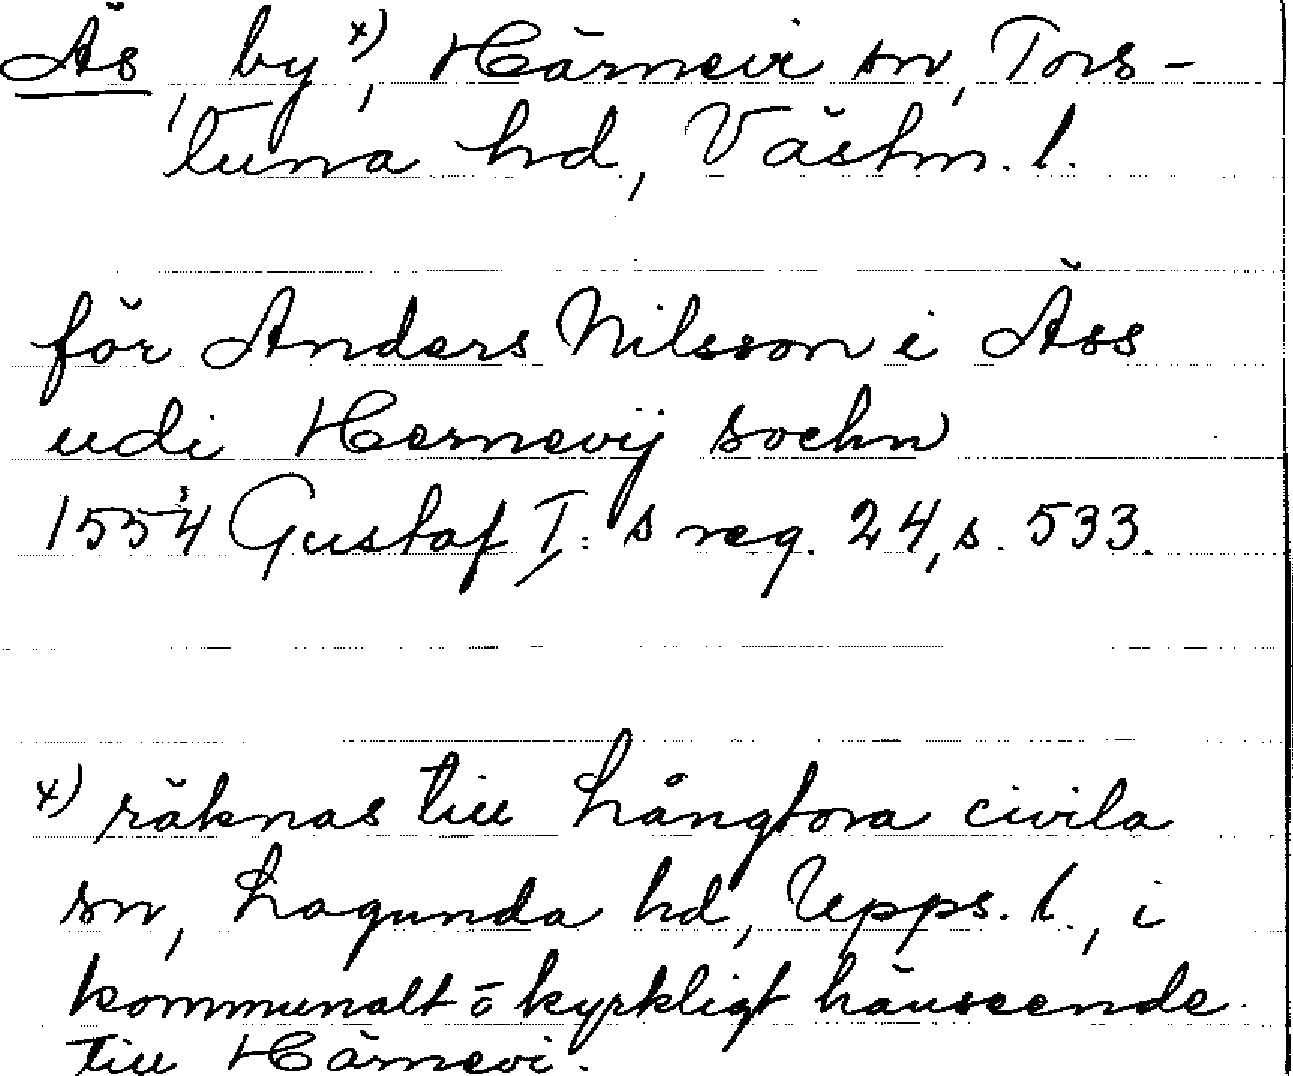 Ås, by x), Härnevi sn, Tors-
tuna hd, Västm. l.
för Anders Nilsson i Åss
udi Hernevij sochn
1554 Gustaf I:s reg. 24, s. 533.
x) räknas till Långtora civila
sn, Lagunda hd, Upps. l., i
kommunalt o kyrkligt hänseende
till Härnevi.